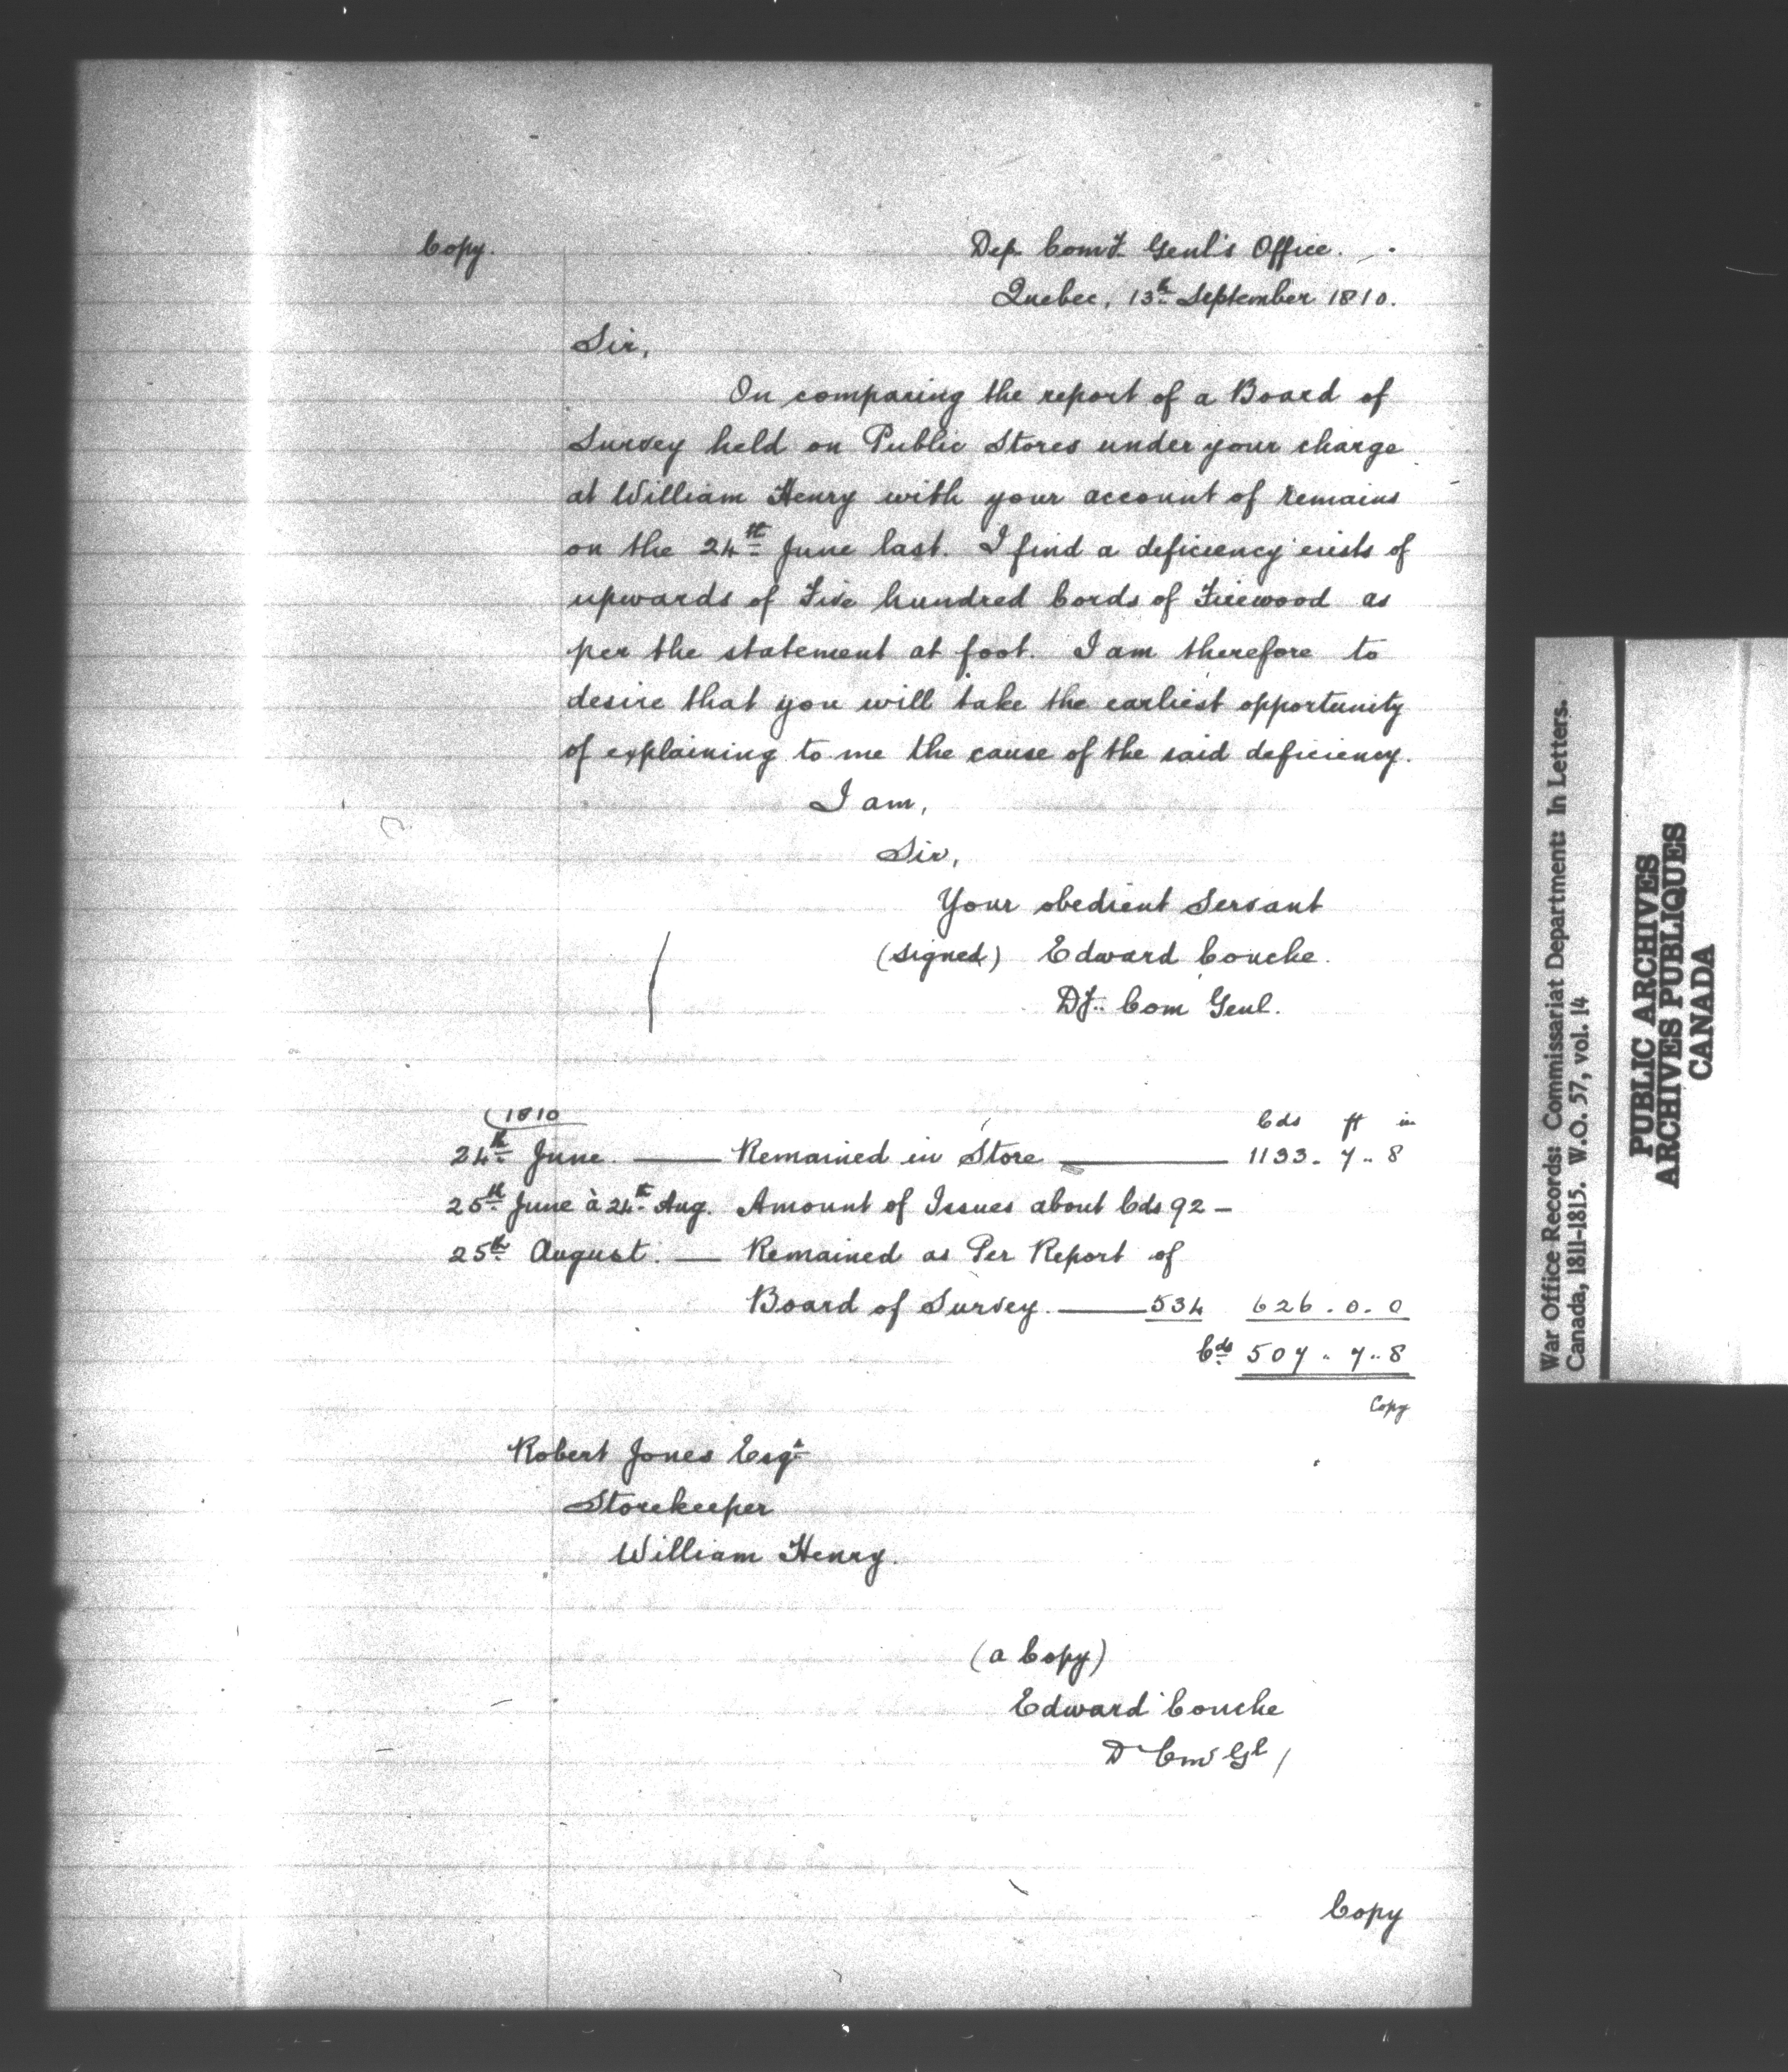 Copy.
Dep. Comy. Genl's Office.
Quebec, 13th September 1810.
Sir,
On comparing the report of a Board of
Survey held on Public Stores under your charge
at William Henry with your account of remains
on the 24th June last. I find a deficiency exists of
upwards of Five hundred Cords of Firewood as
per the statement at foot. I am therefore to
desire that you will take the earliest opportunity
of explaining to me the cause of the said deficiency.
I am,
Sir,
Your obedient Servant
(signed) Edward Couche.
Dy. Com Genl.
1810 Cds ft in
24th June. — Remained in Store — 1133. 7.. 8
25th June à 24th Aug. Amount of Issues about Cds 92 —
25th August. — Remained as Per Report of
Board of Survey. — 534 626. 0. 0
Cds 507.. 7.. 8
Copy
Robert Jones Esqr
Storekeeper
William Henry.
(a Copy)
Edward Couche
D Cm Gl /
Copy
War Office Records: Commissariat Department: In Letters.
Canada, 1811-1815. W.O. 57, vol. 14
PUBLIC ARCHIVES
ARCHIVES PUBLIQUES
CANADA